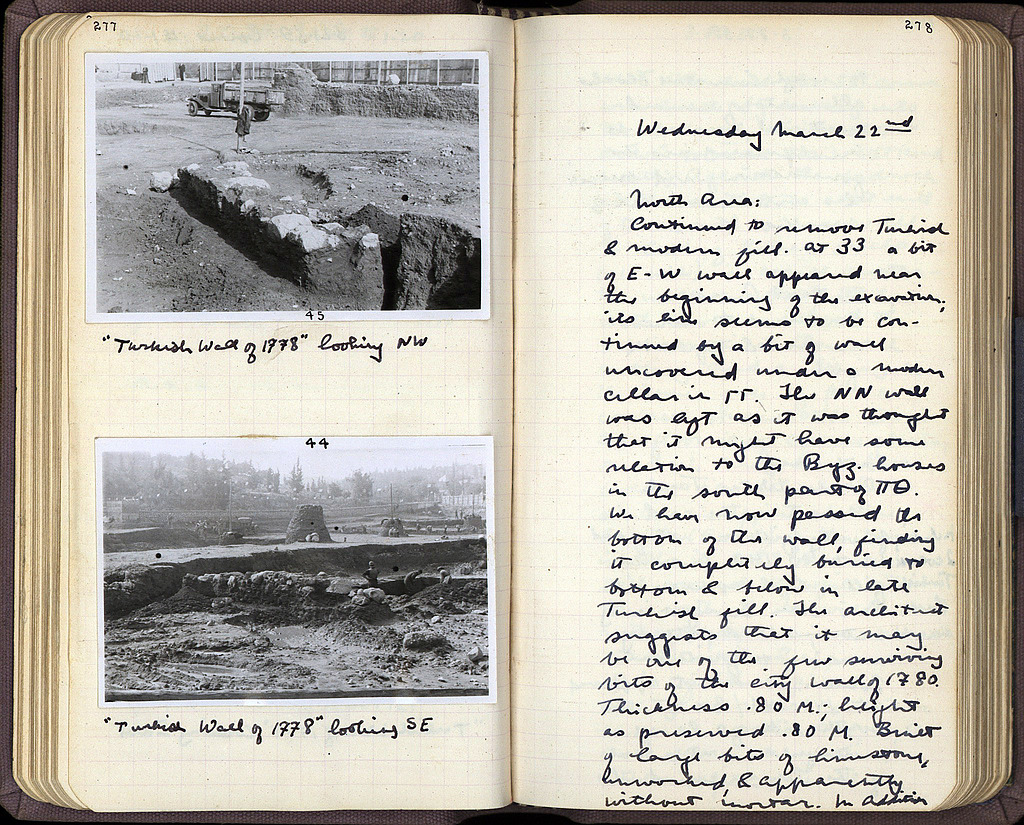 277
45
"Turkish Wall of 1778" looking NW
44
"Turkish Wall of 1778" looking SE
278
Wednesday March 22nd
North Area:
Continued to remove Turkish
& modern fill. At 33 a bit
of E-W wall appeared near
the beginning of the excavation;
its line seems to be con-
tinued by a bit of wall
uncovered under a modern
cellar in ΓΓ. The NN wall
was left as it was thought
that it might have some
relation to the Byz. houses
in the south part of ΠΘ.
We have now passed the
bottom of the wall, finding
it completely buried to
bottom & below in late
Turkish fill. The architect
suggests that it may
be one of the few surviving
bits of the city wall of 1780.
Thickness .80 M.; height
as preserved .80 M. Built
of large bits of limestone,
unworked, & apparently
without mortar. In addition